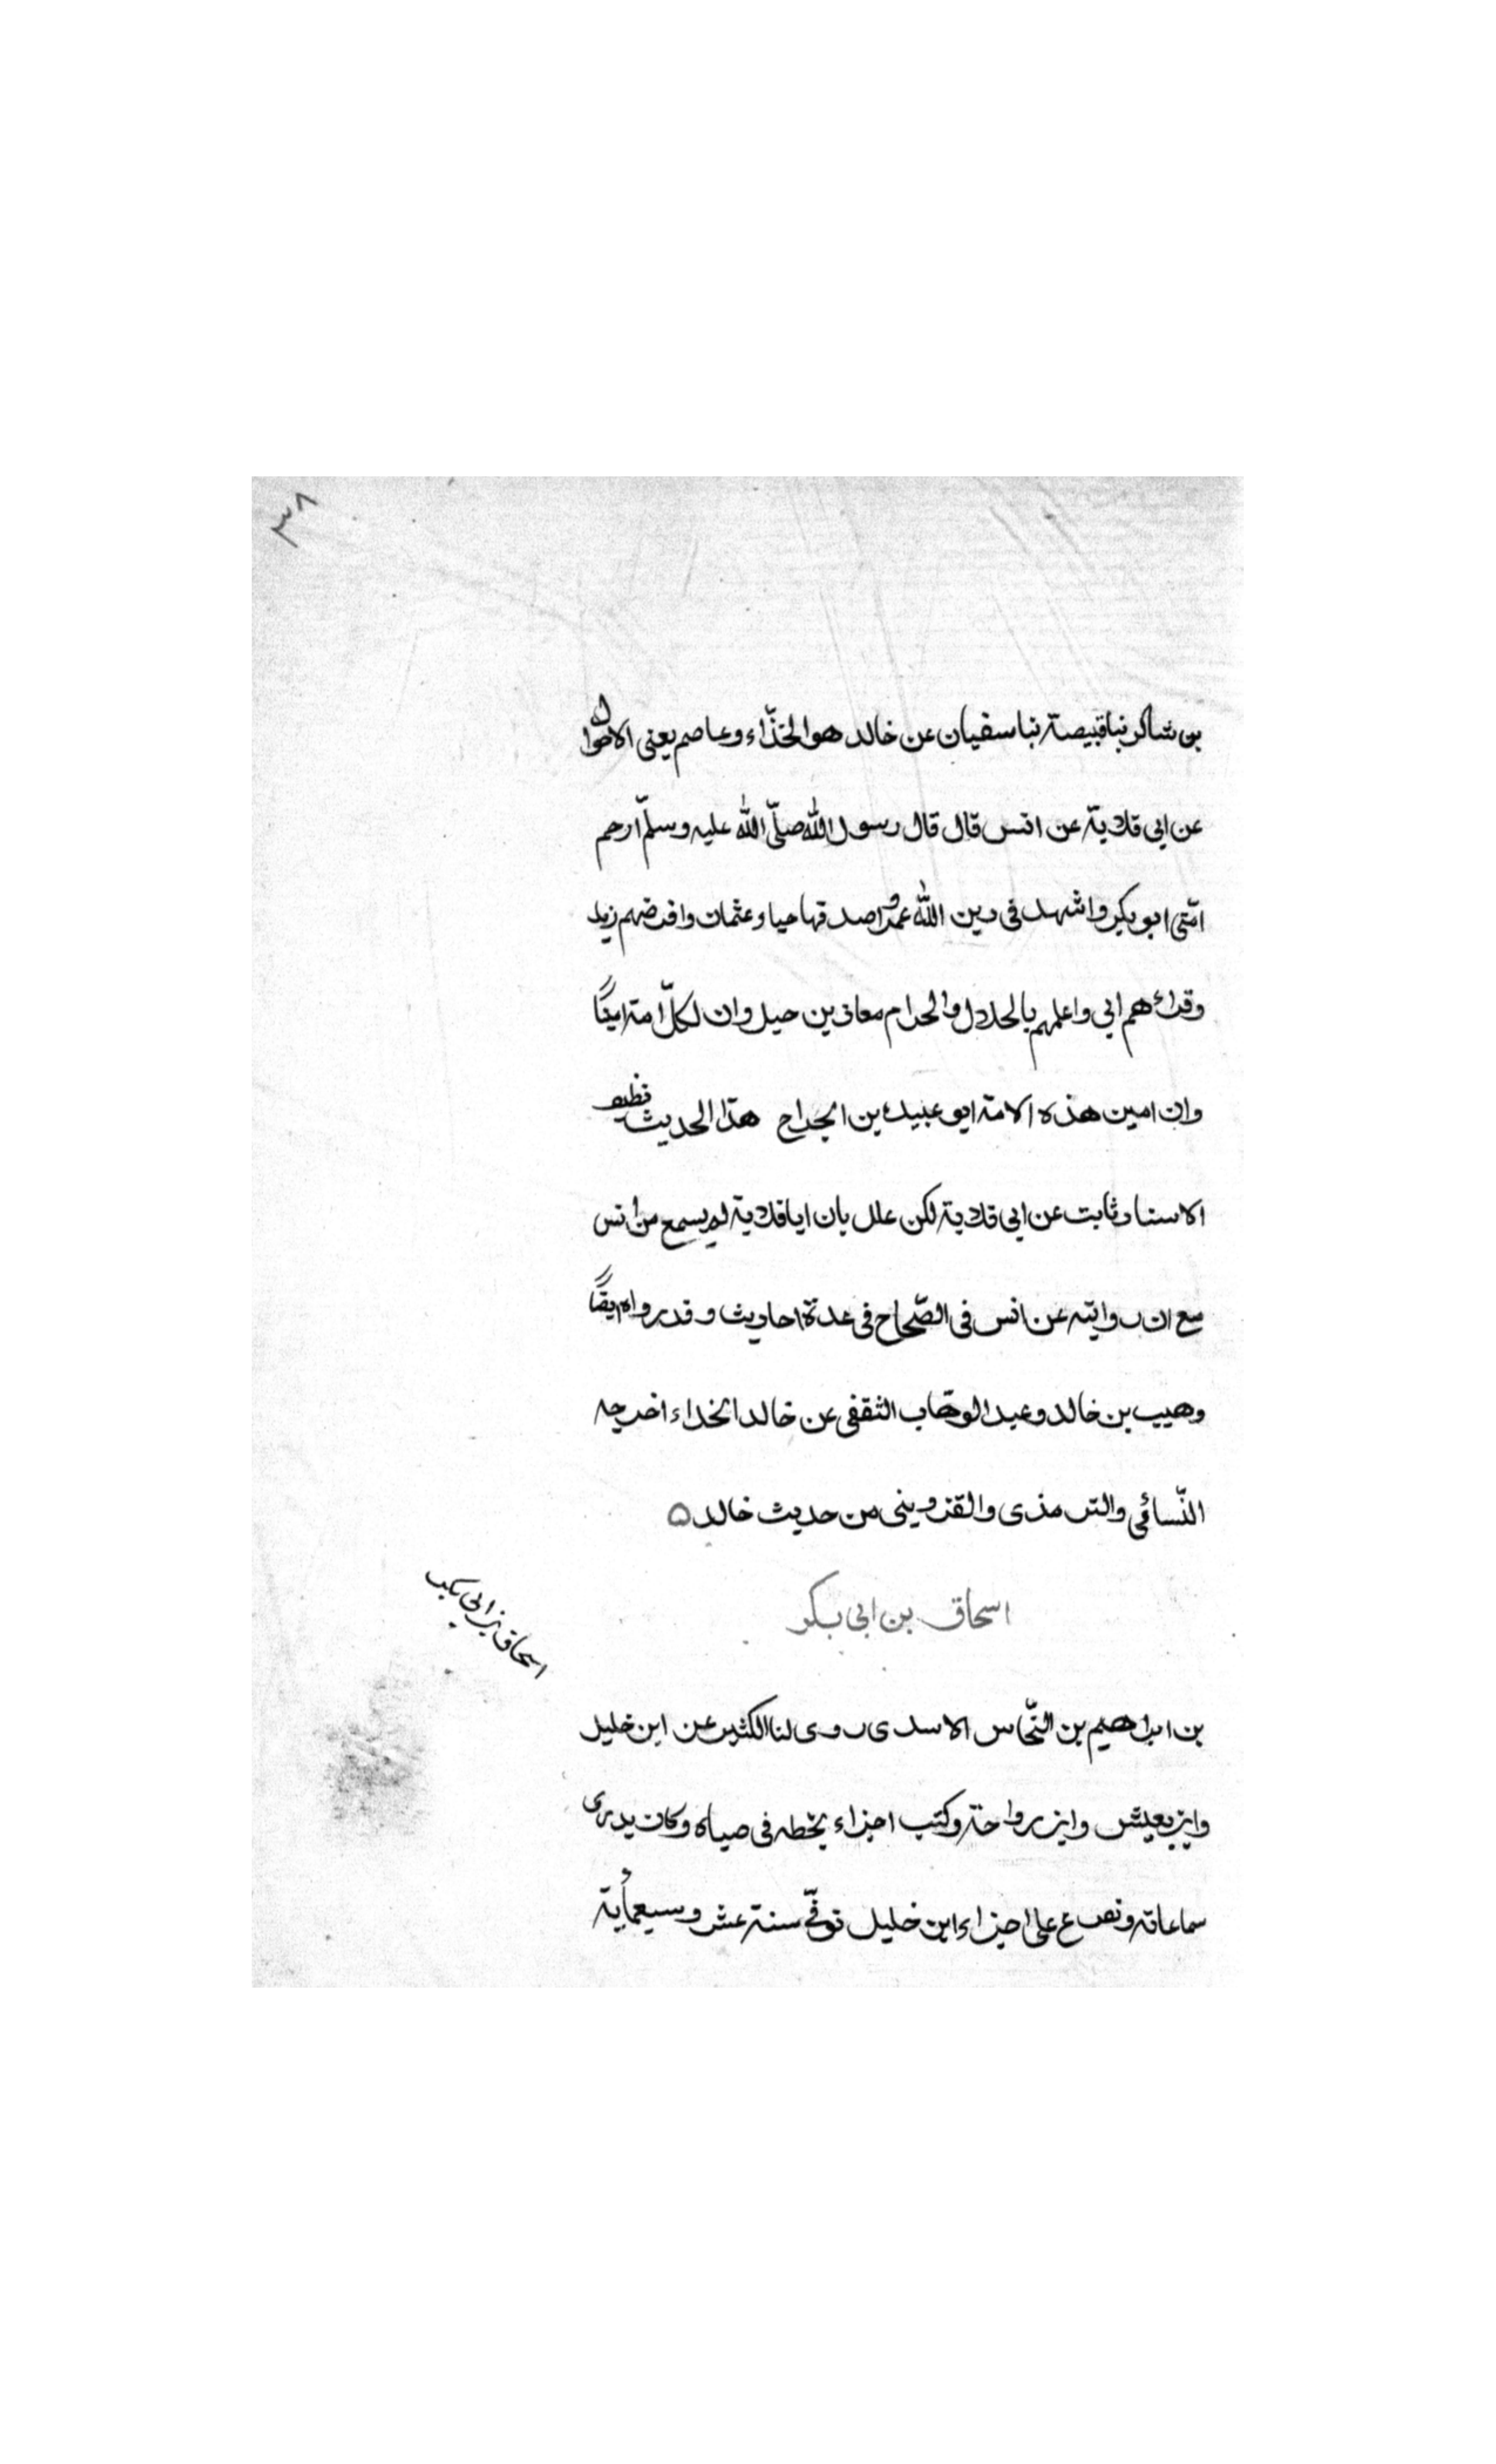 ٣٨
بن شاكر نبا قبيصة نبا سفيان عن خالد هو الحذّاء وعاصم يعنى الاحول
عن ابى قلابة عن انس قال قال رسول الله صلّى الله عليه وسلّم ارحم
امّتى ابو بكر واشهد فى دين الله عمر واصدقها حيا وعثمان وافرضهم زيد
وقراءهم ابي واعلمهم بالحلال والحرام معاذ بن جبل وان لكلّ امة امينًا
وان امين هذه الامة ابو عبيدة بن الجراح هذا الحديث نظيف
الاسناد ثابت عن ابى قلابة لكن علل بان ابا قلابة لم يسمع من انس
مع ان روايته عن انس فى الصّحاح فى عدة احاديث وقد رواه ايضًا
وهيب بن خالد وعبد الوهّاب الثقفى عن خالد الحذاء اخرجه
النّسائى والترمذى والقزوينى من حديث خالد ٥
اسحاق بن ابى بكر
اسحاق بن ابى بكر
بن ابراهيم بن النّحاس الاسدى روى لنا الكثير عن ابن خليل
وابن يعيش وابن رواحة وكتب اجزاء بخطه فى صباه وكان يدرى
سماعاته ونصع على اجزاء ابن خليل توفّى سنة عشر وسبعمأية